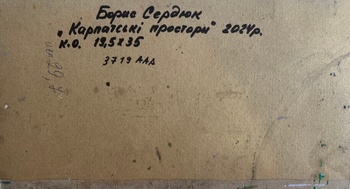 Борис Сердюк
„Карпатські простори" 2024р.
К.О. 19,5х35
3719 ААД